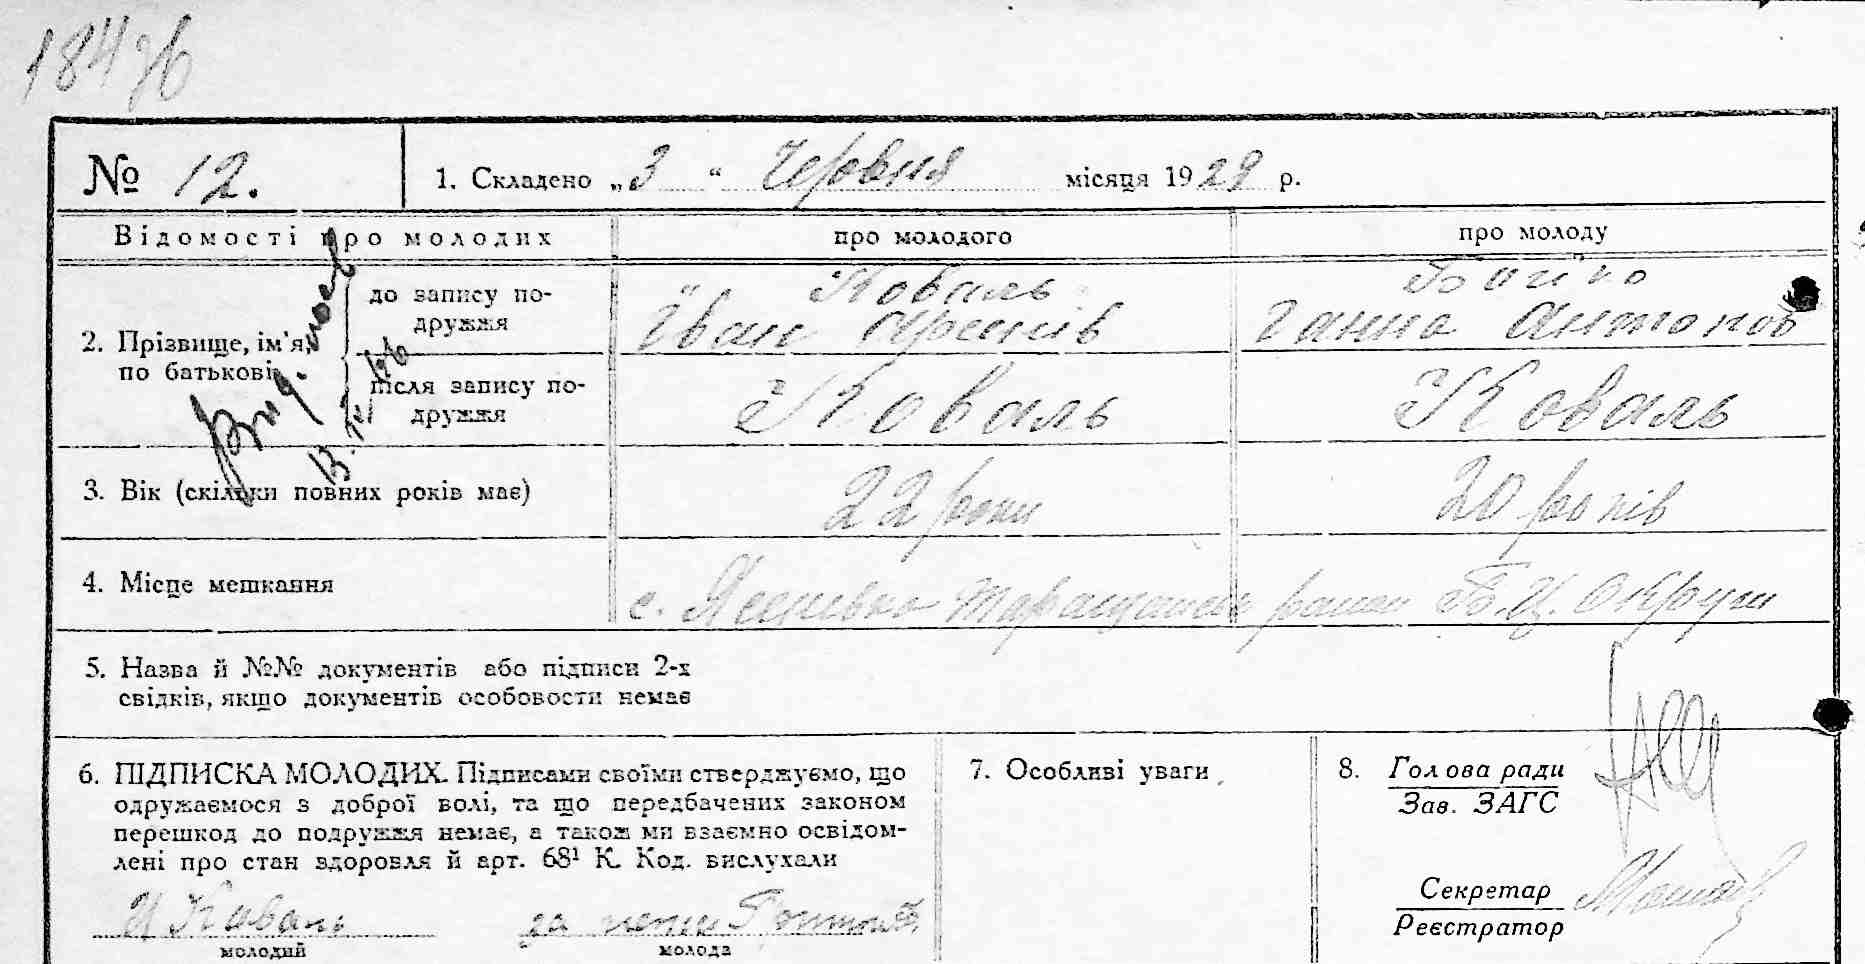 № 12.
1. Складено „3“ Червня місяця 1929 р.
Відомості про молодих
про молодого
про молоду
2. Прізвище, ім'я, по батькові
до запису по-
дружжя
Коваль
Іван Арсенів
Бойко
Ганна Антонов
після запису по-
дружжя
Коваль
Коваль
3. Вік (скільки повних років має)
22 роки
20 років
4. Місце мешкання
с. Таращанськ район Б.Ц. Округи
5. Назва й №№ документів або підписи 2-х
свідків, якщо документів особовости немає
6. ПІДПИСКА МОЛОДИХ. Підписами своїми стверджуємо, що
одружаємося з доброї волі, та що передбачених законом
перешкод до подружжя немає, а також ми взаємно освідом-
лені про стан здоровля й арт. 68¹ К. Код. вислухали
И Коваль
молодий
за
молода
7. Особливі уваги
8. Голова ради
Зав. ЗАГС
Секретар
Реєстратор